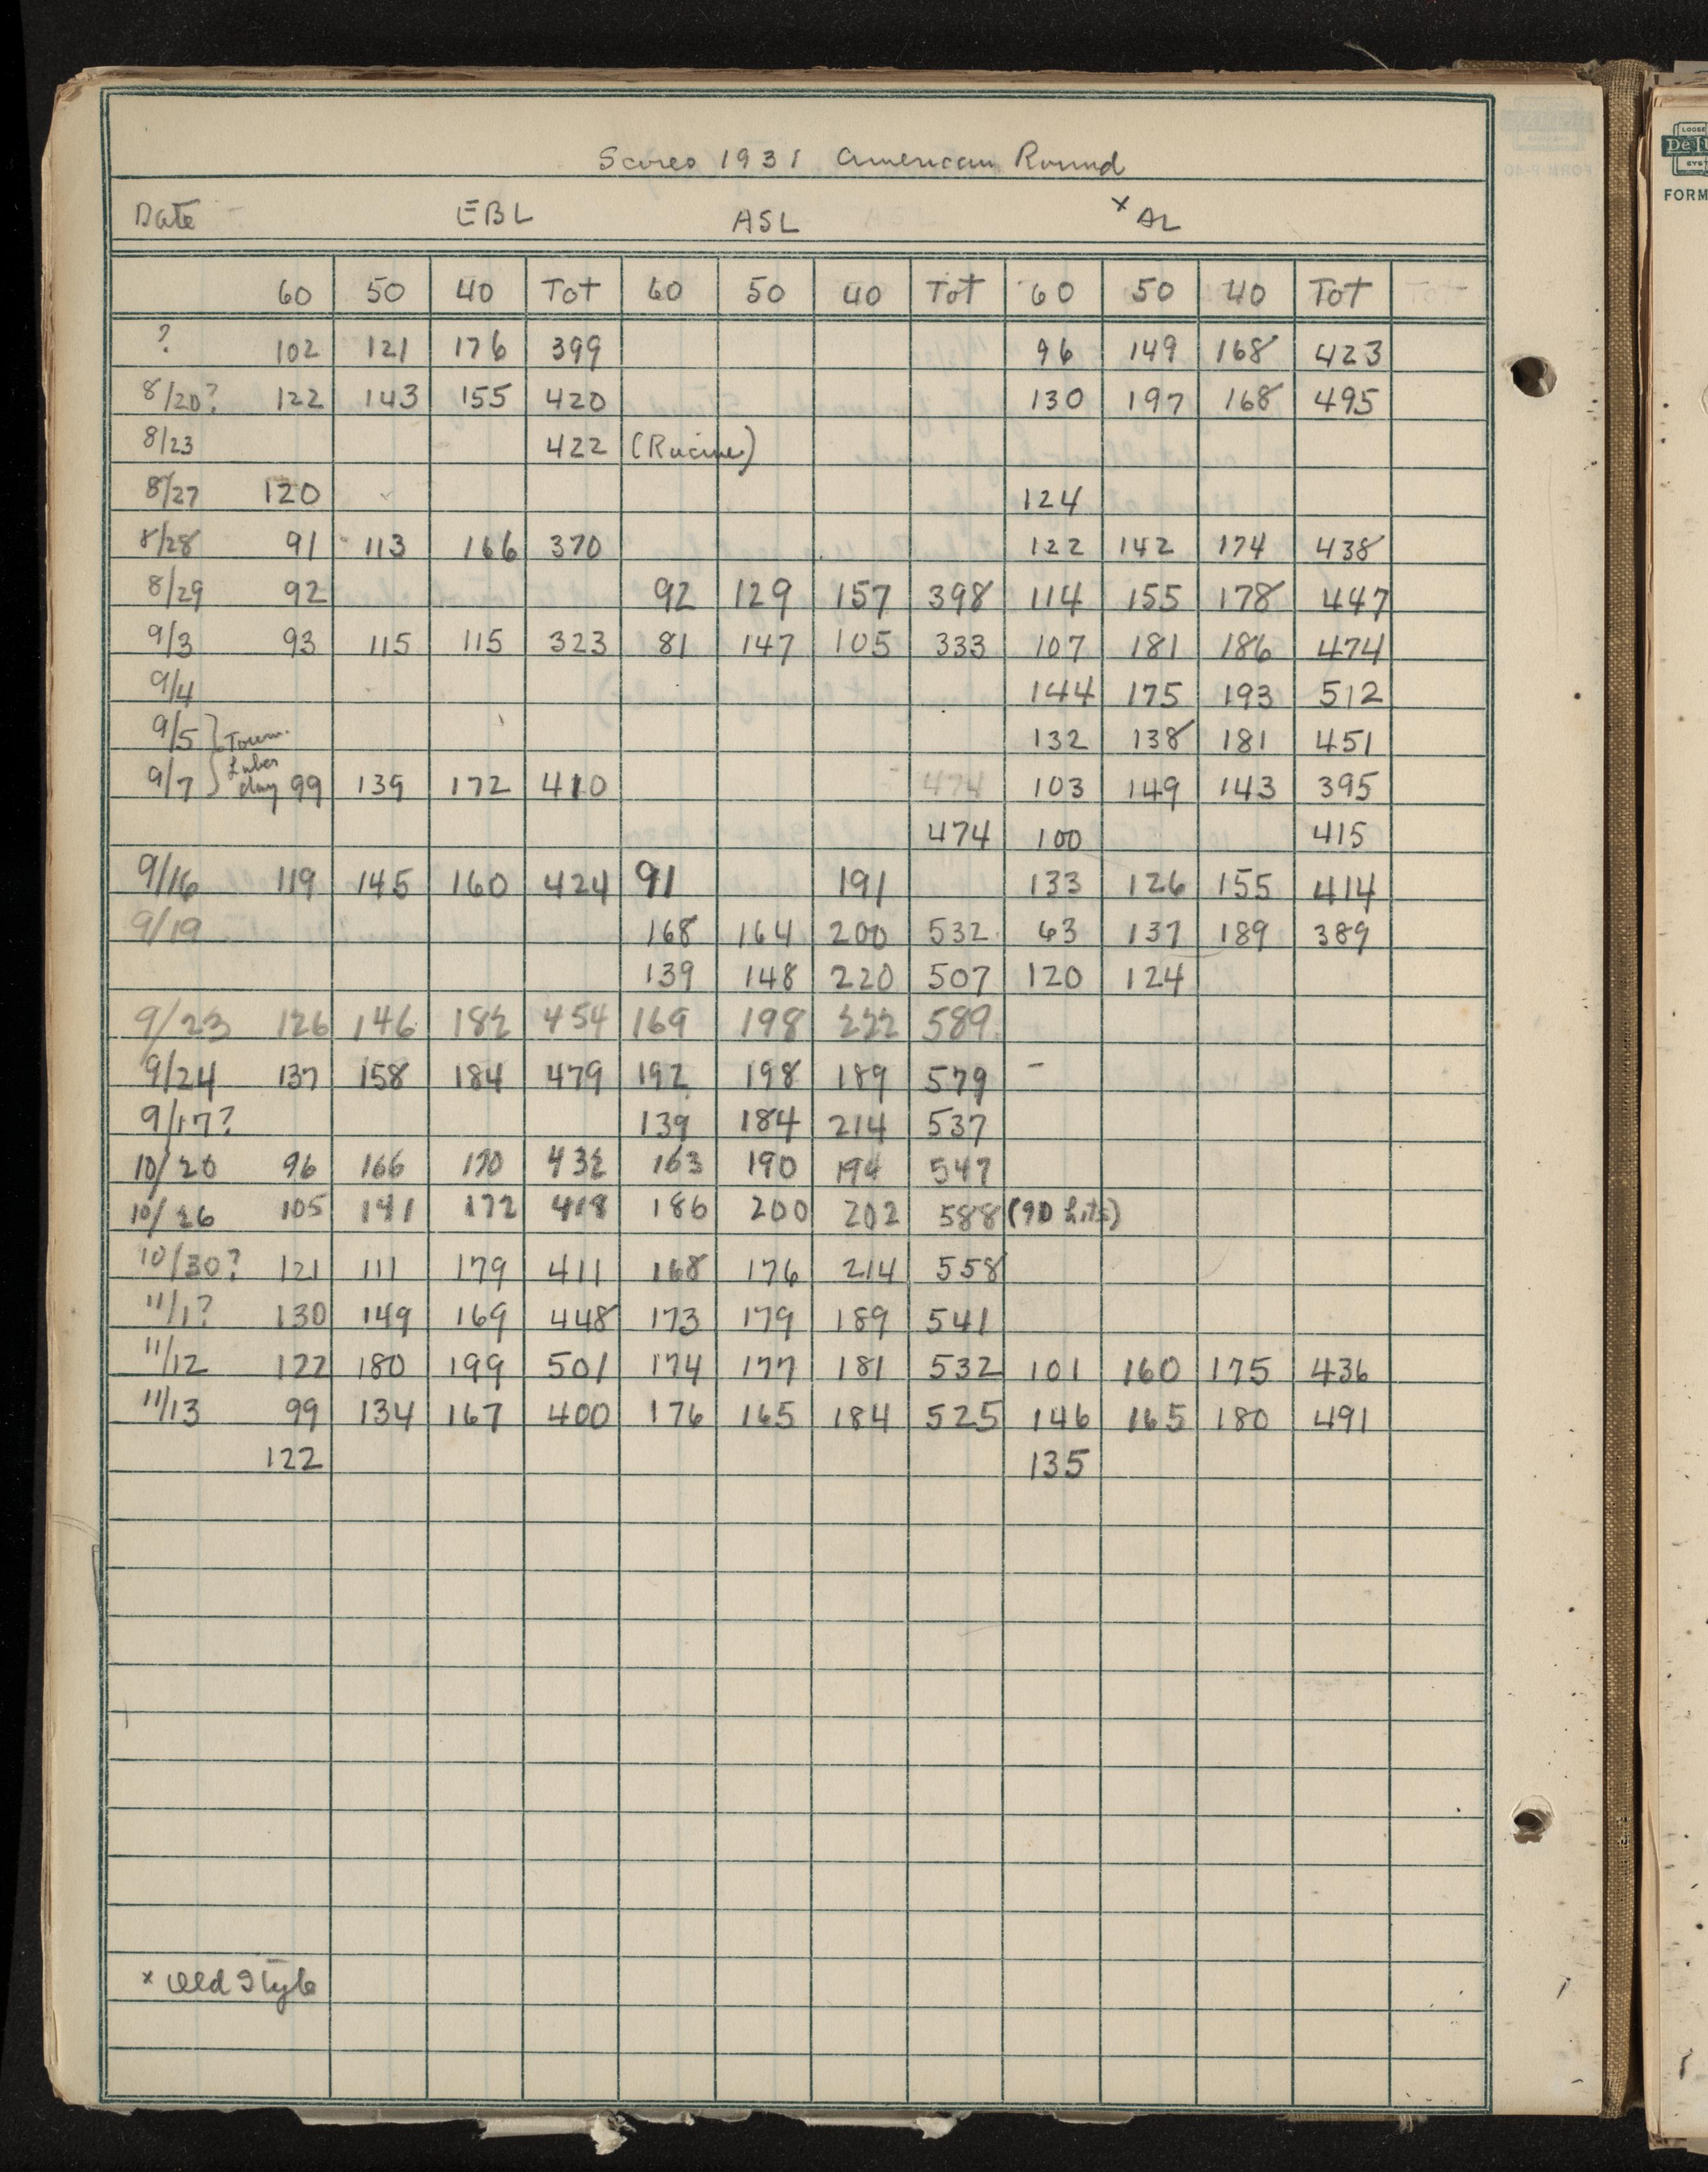 Scores 1931 American Round
Date EBL ASL x AL
60 50 40 Tot 60 50 40 Tot 60 50 40 Tot Tot
? 102 121 176 399 96 149 168 423
8/20? 122 143 155 420 130 197 168 495
8/23 422 (Racine)
8/27 120 124
8/28 91 113 166 370 122 142 174 438
8/29 92 92 129 157 398 114 155 178 447
9/3 93 115 115 323 81 147 105 333 107 181 186 474
9/4 144 175 193 512
9/5 } Tourn. 132 138 181 451
9/7 } Labor day 99 139 172 410 474 103 149 143 395
474 100 415
9/16 119 145 160 424 91 191 133 126 155 414
9/19 168 164 200 532 63 137 189 389
139 148 220 507 120 124
9/23 126 146 182 454 169 198 222 589
9/24 137 158 184 479 192 198 189 579 -
9/17? 139 184 214 537
10/20 96 166 170 432 163 190 194 547
10/26 105 141 172 418 186 200 202 588 (90 hits)
10/30? 121 111 179 411 168 176 214 558
11/1? 130 149 169 448 173 179 189 541
11/12 122 180 199 501 174 177 181 532 101 160 175 436
11/13 99 134 167 400 176 165 184 525 146 165 180 491
122 135
x Old Style
LOOSE
FORM